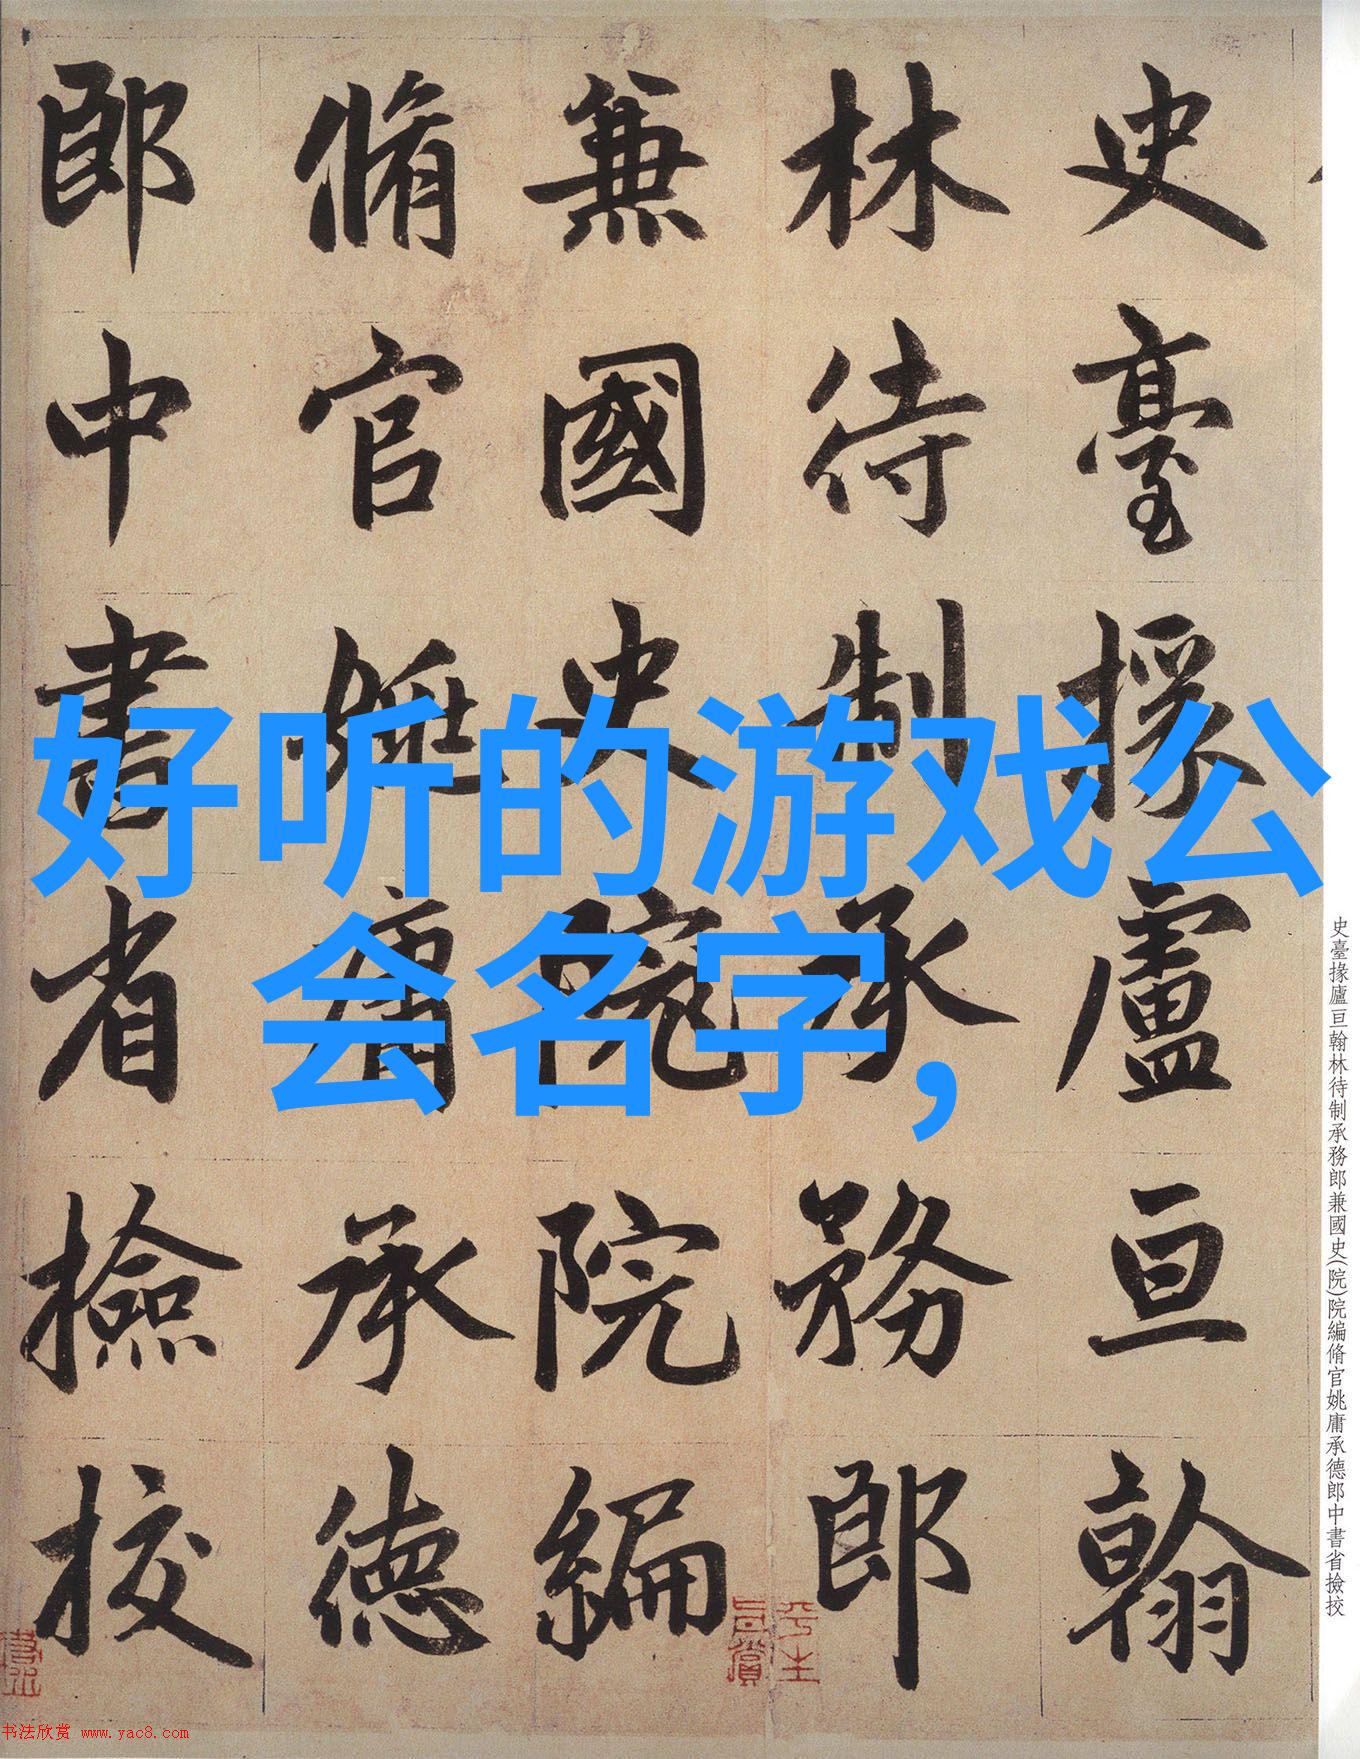 好听的游戏公
会名字,
史臺掾廬亘翰
林待制承務郎
兼國史院院編
脩官姚庸承德
郎中書省撿挍
史臺掾廬亘翰林待制承務郎兼國史(院)院編脩官姚庸承德郎中書省撿挍
平生
真賞
书法欣赏 www.yac8.com